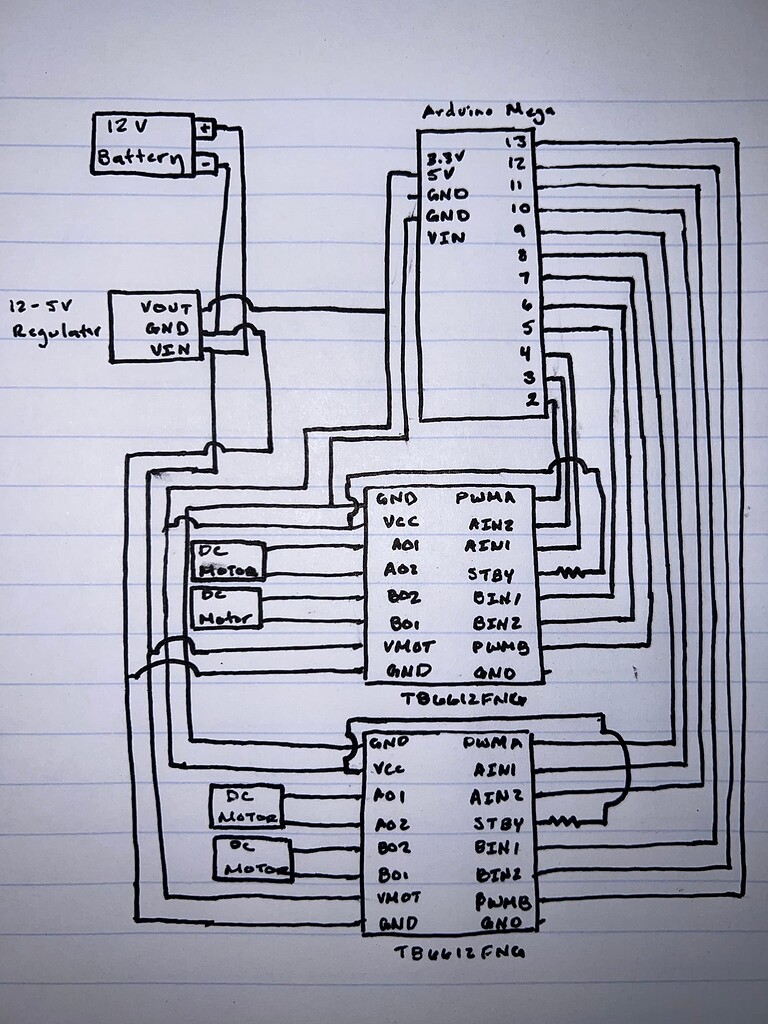 Arduino Mega
12 V
Battery
+
-
3.3V
5V
GND
GND
VIN
13
12
11
10
9
8
7
6
5
4
3
2
12-5V
Regulator
VOUT
GND
VIN
GND PWMA
VCC AIN2
AO1 AIN1
AO2 STBY
BO2 BIN1
BO1 BIN2
VMOT PWMB
GND GND
DC
MOTOR
DC
Motor
TB6612FNG
GND PWMA
VCC AIN1
AO1 AIN2
AO2 STBY
BO2 BIN1
BO1 BIN2
VMOT PWMB
GND GND
DC
MOTOR
DC
MOTOR
TB6612FNG